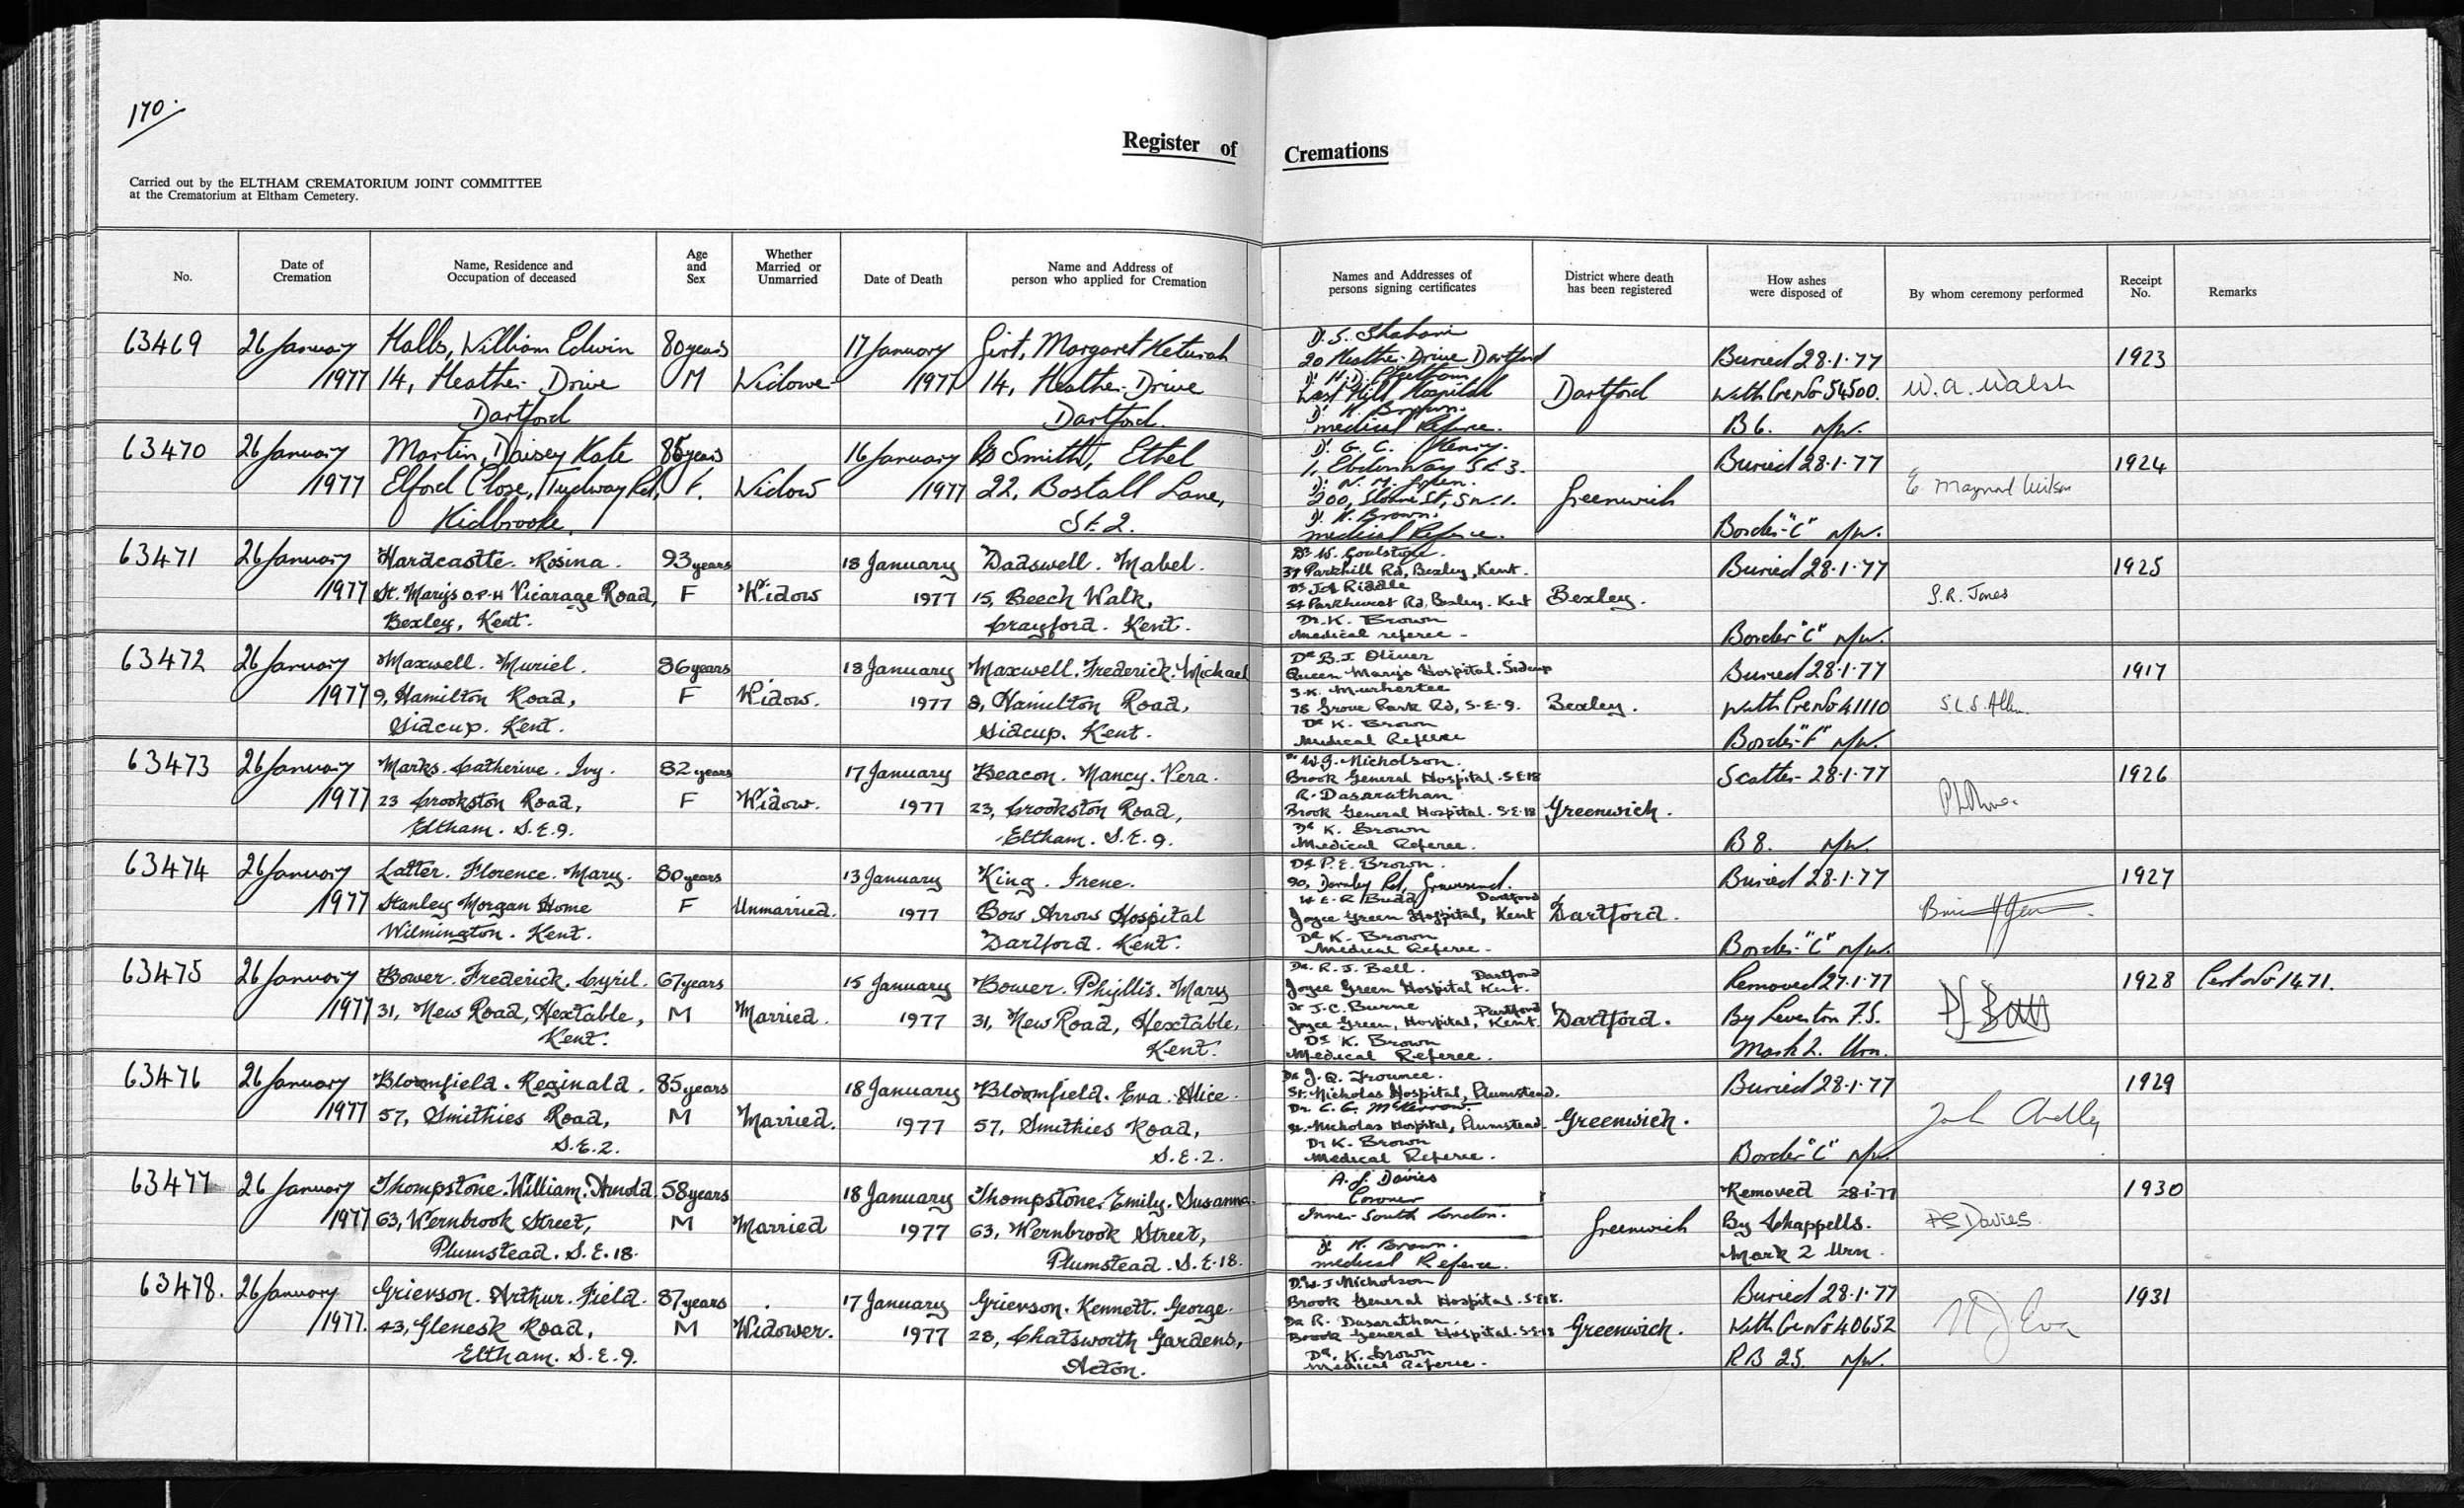 170.
Register of Cremations
Carried out by the ELTHAM CREMATORIUM JOINT COMMITTEE
at the Crematorium at Eltham Cemetery.
No.
Date of
Cremation
Name, Residence and
Occupation of deceased
Age
and
Sex
Whether
Married or
Unmarried
Date of Death
Name and Address of
person who applied for Cremation
Names and Addresses of
persons signing certificates
District where death
has been registered
How ashes
were disposed of
By whom ceremony performed
Receipt
No.
Remarks
63469
26 January
1977
Halls, William Edwin
14, Heather Drive
Dartford
80 years
M
17 January
1977
Girt, Margaret Keturah
14, Heather Drive
Dartford.
20 Heather Drive Dartford
West Hill Hospital
Dr K. Brown.
medical Referee.
Dartford
Buried 28.1.77
With Cre No 54500.
B6. N/W.
W. A. Walsh
1923
63470
26 January
1977
Martin, Daisey Kate
Elford Close, Tudway Rd,
Kidbrooke.
F.
Widow
16 January
1977
Smith, Ethel
22, Bostall Lane,
S.E.2.
Dr G. C. Henry.
200, Sloane St, S.W.1.
Dr K. Brown.
medical Referee.
Greenwich
Buried 28.1.77
Border "C" N/W.
E Maynard Wilson
1924
63471
26 January
1977
Hardcastle. Rosina.
St. Marys O.P.H Vicarage Road,
Bexley, Kent.
93 years
F
Widow
18 January
1977
Dadswell. Mabel.
15, Beech Walk,
Crayford. Kent.
Dr W. Goulstone.
37 Parkhill Rd, Bexley, Kent.
Riddle
Parkhurst Rd, Bexley. Kent
Dr. K. Brown
Medical referee.
Bexley.
Buried 28.1.77
Border "C" N/W.
S.R. Jones
1925
63472
26 January
1977
Maxwell. Muriel.
9, Hamilton Road,
Sidcup. Kent.
86 years
F
Widow.
18 January
1977
Maxwell. Frederick. Michael
Hamilton Road,
Sidcup. Kent.
Dr B.J. Oliver
Queen Marys Hospital. Sidcup
78 Grove Park Rd, S.E.9.
Dr K. Brown
Medical Referee
Bexley.
Buried 28.1.77
With Cre No 41110
Border "F" N/W.
S.L.S. Allen.
1917
63473
26 January
1977
Marks. Catherine. Ivy.
23 Crookston Road,
Eltham. S.E.9.
82 years
F
Widow.
17 January
1977
Beacon. Nancy. Vera.
23, Crookston Road,
Eltham. S.E.9.
W.J. Nicholson.
Brook General Hospital. S.E.18
R. Dasarathan
Brook General Hospital. S.E.18
Dr K. Brown
Medical Referee.
Greenwich.
Scatter 28.1.77
B8. N/W.
1926
63474
26 January
1977
Latter. Florence. Mary.
Stanley Morgan Home
Wilmington. Kent.
80 years
F
Unmarried.
13 January
1977
King. Irene.
Bow Arrow Hospital
Dartford. Kent.
Dr P.E. Brown.
90, Darnley Rd, Gravesend.
W E.R Budd Dartford
Joyce Green Hospital, Kent
Dr K. Brown
Medical Referee.
Dartford.
Buried 28.1.77
Border "C" N/W.
1927
63475
26 January
1977
Bower. Frederick. Cyril.
31, New Road, Hextable,
Kent.
67 years
M
Married.
15 January
1977
Bower. Phyllis. Mary
31, New Road, Hextable,
Kent.
Dr. R. J. Bell. Dartford
Joyce Green Hospital Kent.
Dr J.C. Burne Dartford
Joyce Green, Hospital, Kent.
Dr K. Brown
Medical Referee.
Dartford.
Removed 27.1.77
By Leverton F.S.
Mark 2. Urn.
1928
Cert No 1471.
63476
26 January
1977
Bloomfield. Reginald.
57, Smithies Road,
S.E.2.
85 years
M
Married.
18 January
1977
Bloomfield. Eva. Alice.
57, Smithies Road,
S.E.2.
Dr J.Q. Trounce.
St. Nicholas Hospital, Plumstead.
Dr. C. G. McKerrow.
St. Nicholas Hospital, Plumstead.
Dr K. Brown
Medical Referee.
Greenwich.
Buried 28.1.77
Border "C" N/W.
1929
63477
26 January
1977
Thompstone. William. Arnold
63, Wernbrook Street,
Plumstead. S.E.18.
58 years
M
Married
18 January
1977
Thompstone. Emily. Susanna.
63, Wernbrook Street,
Plumstead. S.E.18.
A. J. Davies
Coroner
Inner South London.
Dr K. Brown.
medical Referee.
Greenwich
Removed 28.1.77
By Chappells.
Mark 2 Urn.
Davies.
1930
63478.
26 January
1977.
Grievson. Arthur. Field.
43, Glenesk Road,
Eltham. S.E.9.
87 years
M
Widower.
17 January
1977
Grievson. Kennett. George.
28, Chatsworth Gardens,
Acton.
Dr W.J Nicholson
Brook General Hospital. S.E.18.
Dr R. Dasarathan.
Brook General Hospital. S.E.18
Dr. K. Brown
Medical Referee.
Greenwich.
Buried 28.1.77
With Cre No 40652
RB 25. N/W.
1931